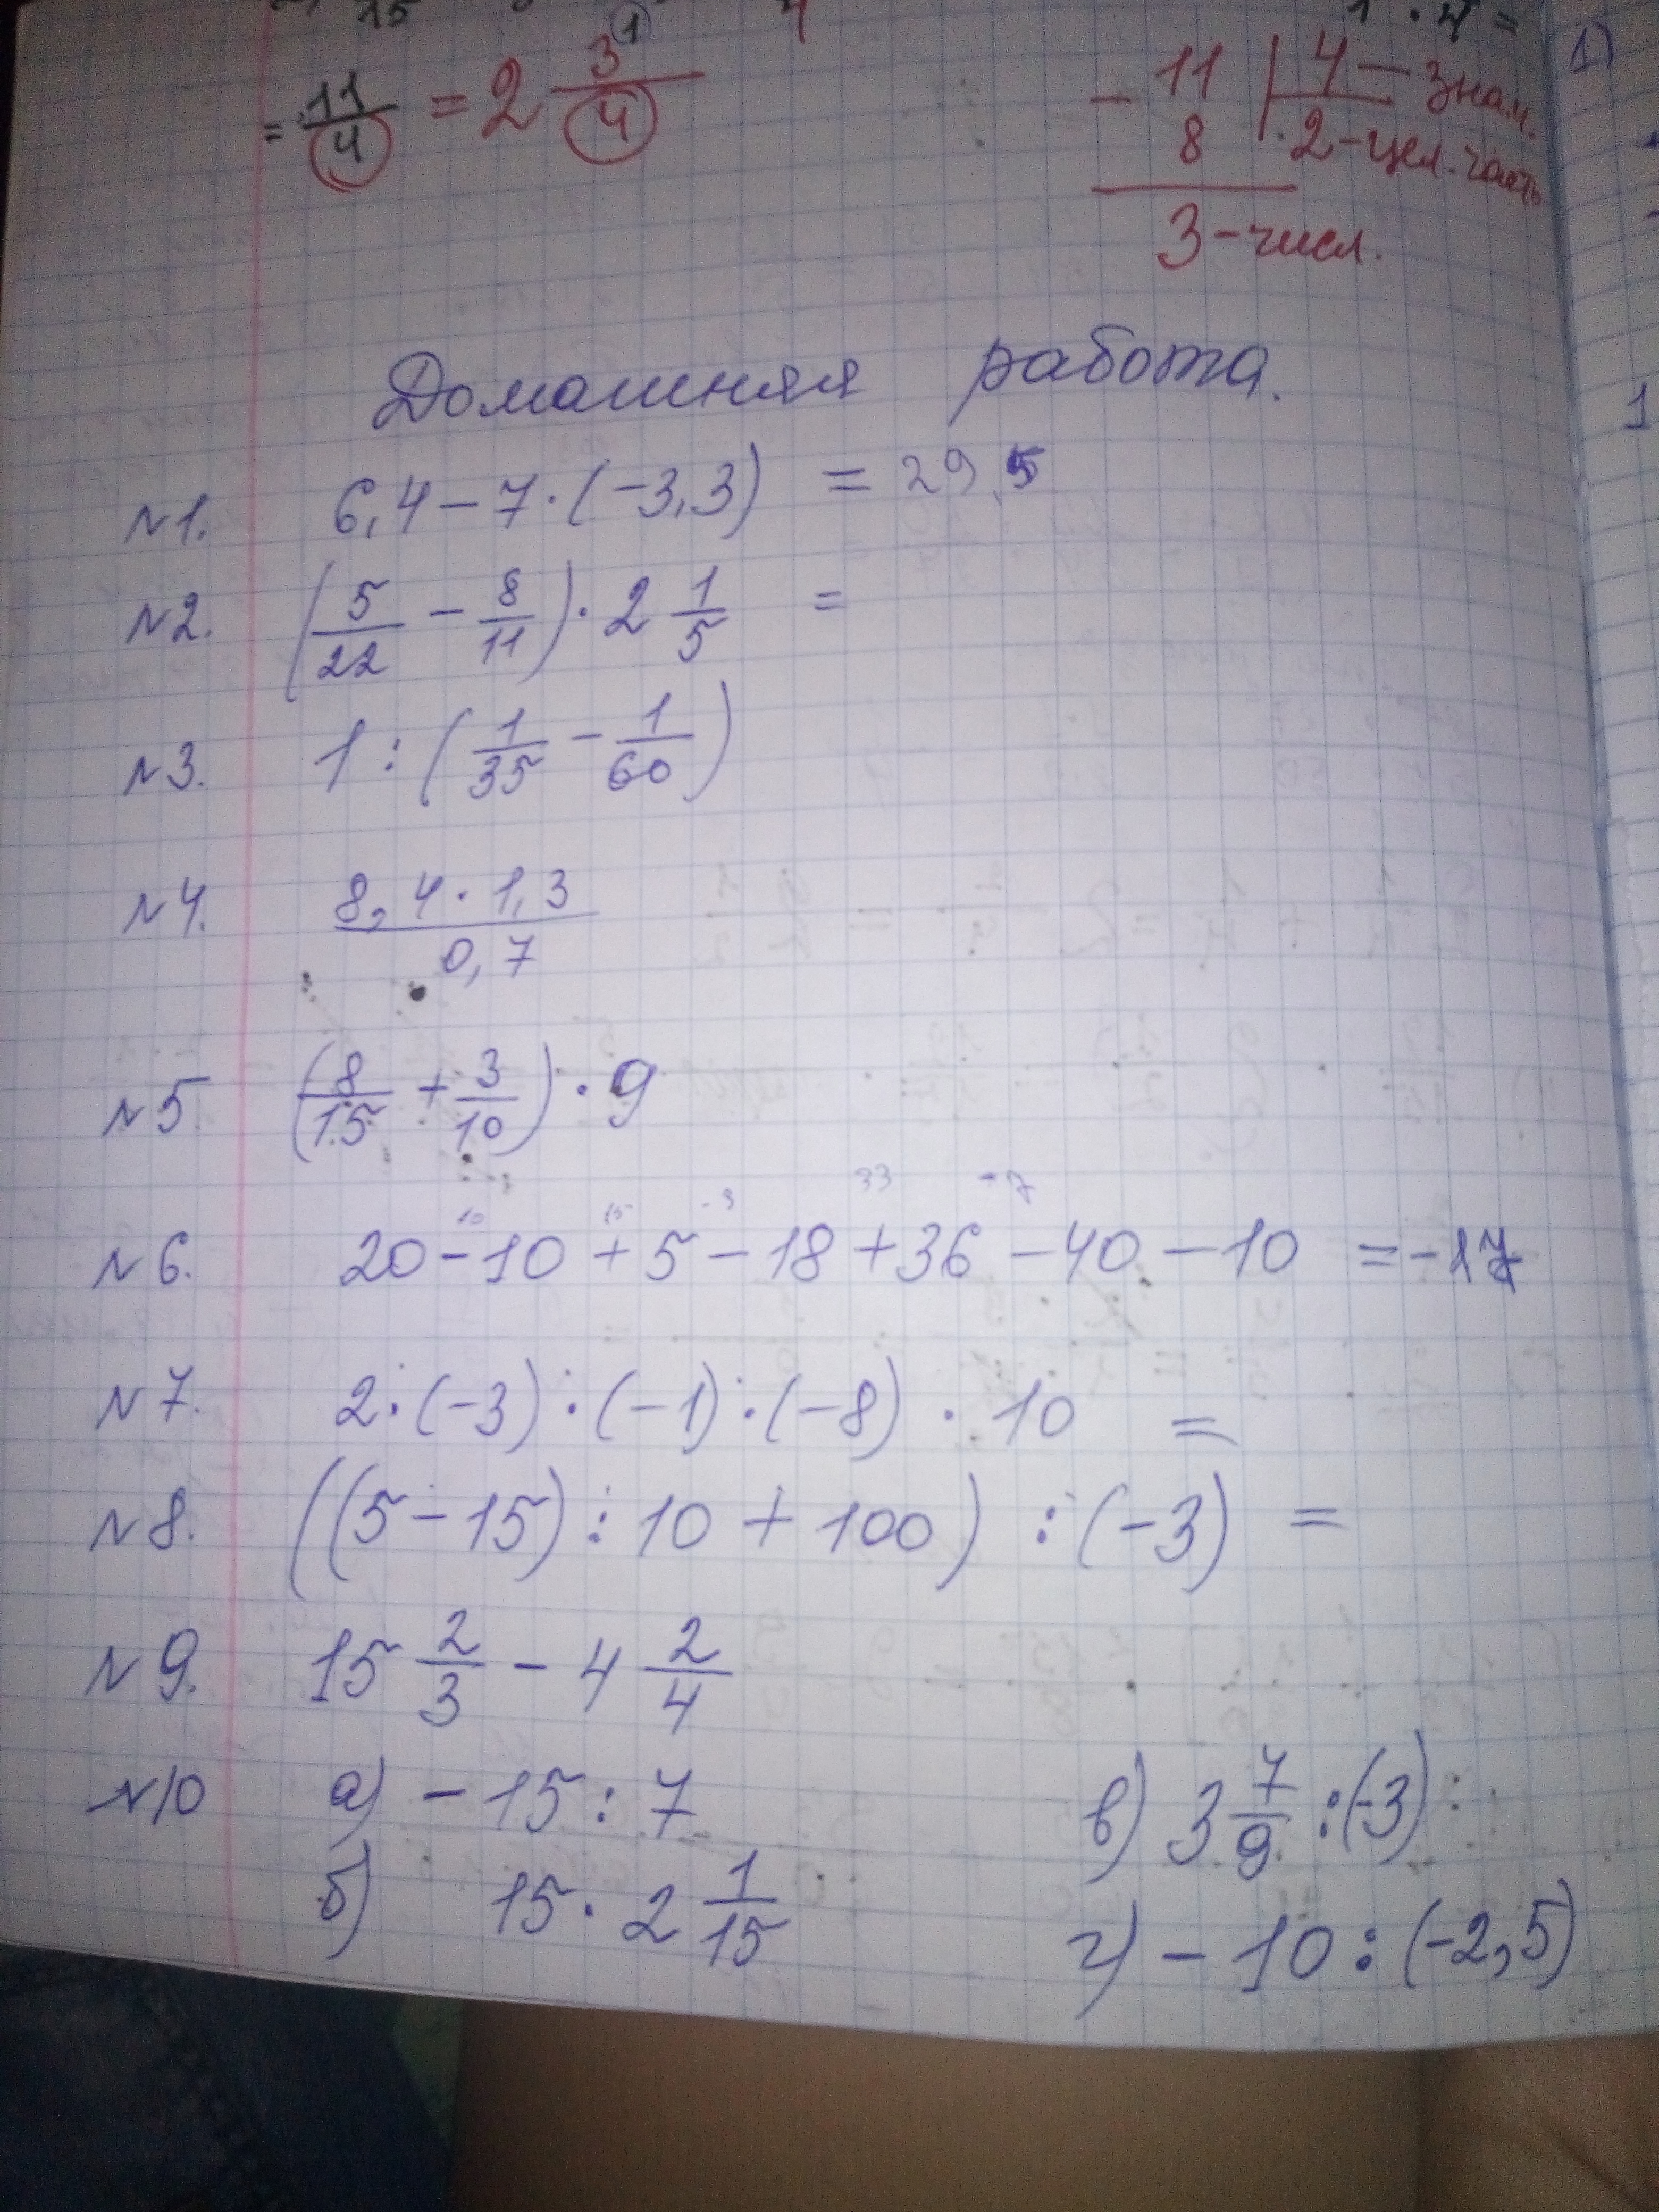 = 11/4 = 2 3/4
- 11 | 4 — знам.
8 2 - цел. часть
3 - числ.
Домашняя работа.
№1. 6,4 - 7 · (-3,3) = 29,5
№2. (5/22 - 8/11) · 2 1/5 =
№3. 1 : (1/35 - 1/60)
№4. 8,4 · 1,3 / 0,7
№5 (8/15 + 3/10) · 9
10 15 -3 33 -7
№6. 20 - 10 + 5 - 18 + 36 - 40 - 10 = -17
№7. 2 · (-3) · (-1) · (-8) · 10 =
№8. ((5 - 15) : 10 + 100) : (-3) =
№9. 15 2/3 - 4 2/4
№10 а) - 15 : 7
в) 3 7/9 : (-3)
б) 15 · 2 1/15
г) - 10 : (-2,5)
1)
1